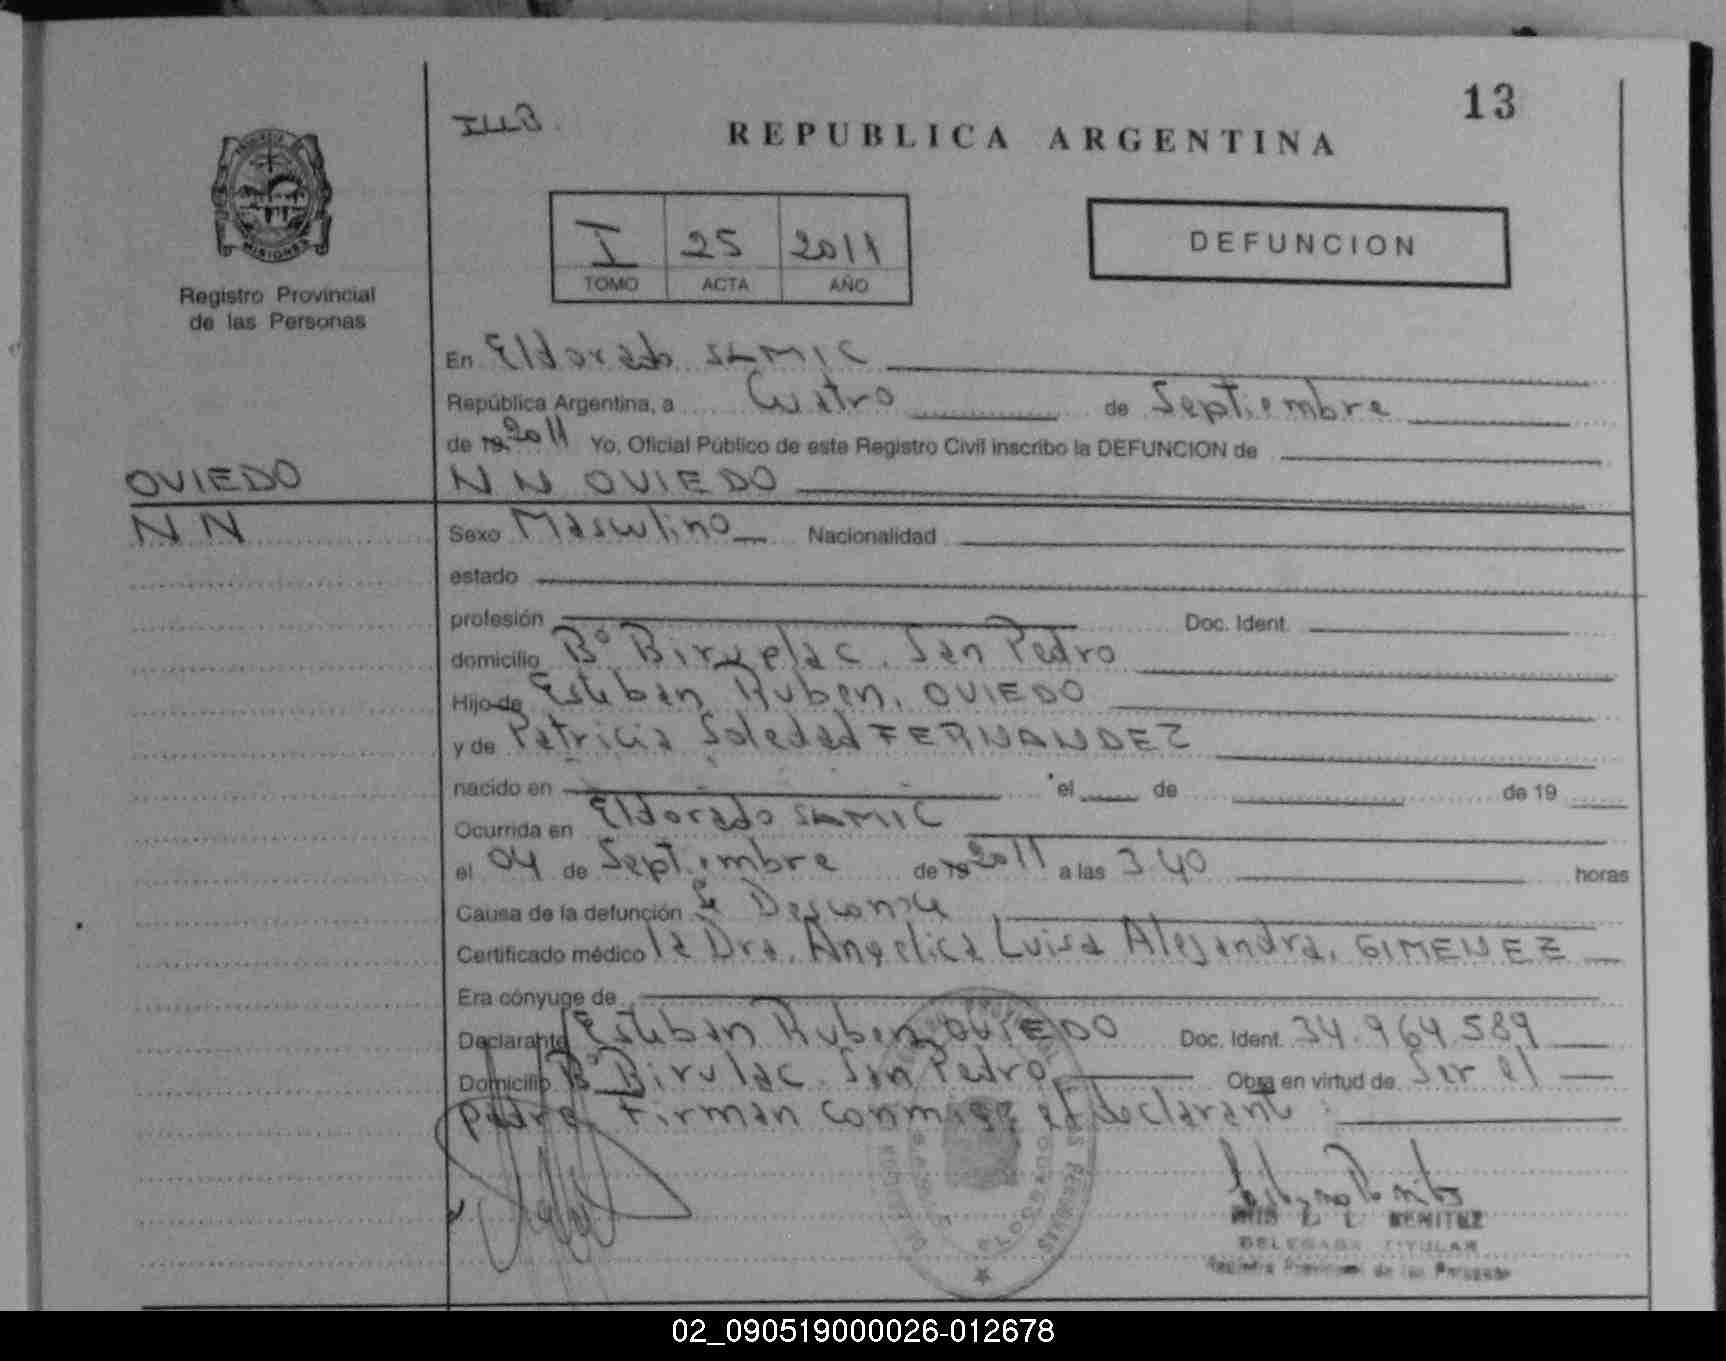 13
ILLB.
REPUBLICA ARGENTINA
MISIONES
Registro Provincial
de las Personas
I 25 2011
TOMO ACTA AÑO
DEFUNCION
En Eldorado SAMIC
República Argentina, a Cuatro de Septiembre
de 19 2011 Yo, Oficial Público de este Registro Civil inscribo la DEFUNCION de
OVIEDO
N N OVIEDO
N N
Sexo Masculino Nacionalidad
estado
profesión Doc. Ident.
domicilio B° Biruelac. San Pedro
Hijo de Esteban Ruben, OVIEDO
y de Patricia Soledad FERNANDEZ
nacido en el de de 19
Ocurrida en Eldorado SAMIC
el 04 de Septiembre de 19 2011 a las 3.40 horas
Causa de la defunción Se Desconoce
Certificado médico la Dra. Angelica Luisa Alejandra, GIMENEZ
Era cónyuge de
Declarante Esteban Ruben OVIEDO Doc. Ident. 34.964.589
Domicilio B° Birulac. San Pedro Obra en virtud de Ser el
padre. Firman conmigo el declarante
BENITEZ
DELEGADA TITULAR
Registro Provincial de las Personas
02_090519000026-012678